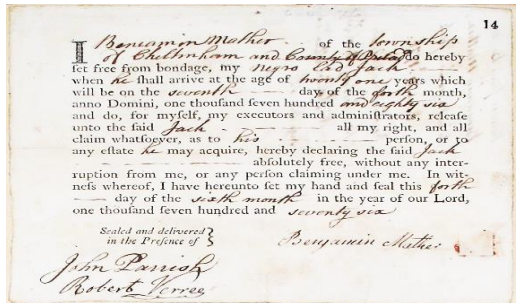 14
I Benjamin Mather of the township
of Cheltenham and County of Philad do hereby
set free from bondage, my Negro Lad Jack
when he shall arrive at the age of twenty one years which
will be on the seventh day of the forth month,
anno Domini, one thousand seven hundred and eighty six
and do, for myself, my executors and administrators, release
unto the said Jack all my right, and all
claim whatsoever, as to his person, or to
any estate he may acquire, hereby declaring the said Jack
absolutely free, without any inter-
ruption from me, or any person claiming under me. In wit-
ness whereof, I have hereunto set my hand and seal this forth
day of the sixth month in the year of our Lord,
one thousand seven hundred and seventy six
Sealed and delivered
in the Presence of
Benjamin Mather
John Parrish
Robert Verree